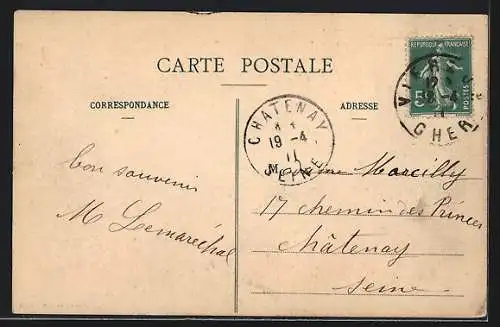 CARTE POSTALE
CORRESPONDANCE
ADRESSE
REPUBLIQUE FRANÇAISE
POSTES
5
VIER
19-4
11
CHER
CHATENAY
19-4
11
SEINE
bon souvenir
M Lemaréchal
Marcilly
17 chemin des Princes
Châtenay
Seine